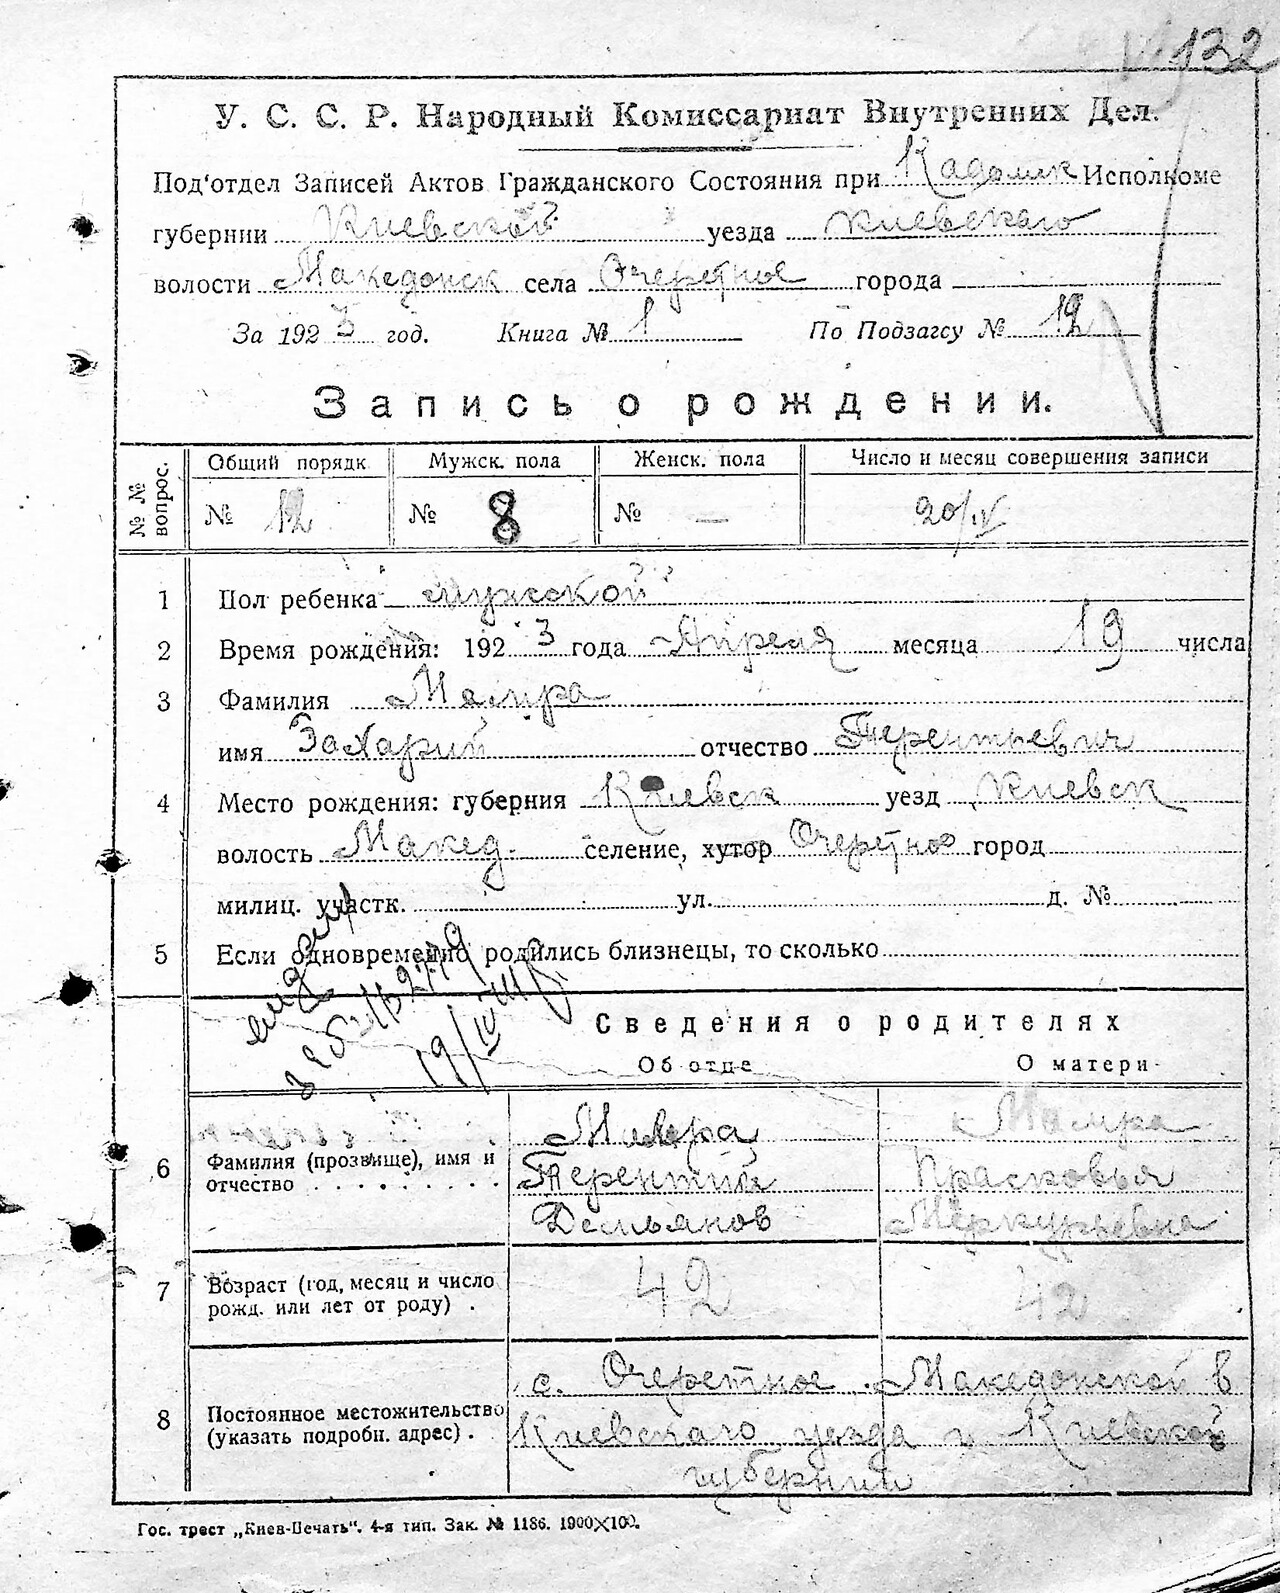 132
У. С. С. Р. Народный Комиссариат Внутренних Дел.
Под'отдел Записей Актов Гражданского Состояния при Исполкоме
губернии Киевской уезда Киевскаго
волости Македонск села Очеретное города
За 1923 год. Книга № 1 По Подзагсу № 12
Запись о рождении.
№ № вопрос.
Общий порядк Мужск. пола Женск. пола Число и месяц совершения записи
№ 12 № 8 № — 20/IV
1 Пол ребенка мужской
2 Время рождения: 1923 года Апреля месяца 19 числа
3 Фамилия
имя Захарий отчество Терентьевич
4 Место рождения: губерния Киевск уезд Киевск
волость Макед. селение, хутор Очеретное город
милиц. участк. ул. д. №
5 Если одновременно родились близнецы, то сколько
Сведения о родителях
Об отце О матери
6 Фамилия (прозвище), имя и
отчество
Терентий Прасковья
Демьянов Меркурьевна
7 Возраст (год, месяц и число
рожд. или лет от роду) . 42 42
8 Постоянное местожительство
(указать подробн. адрес) .
с. Очеретное Македонской в
Киевскаго уезда и Киевской
губернии
Гос. трест „Киев-Печать". 4-я тип. Зак. № 1186. 1900×100.